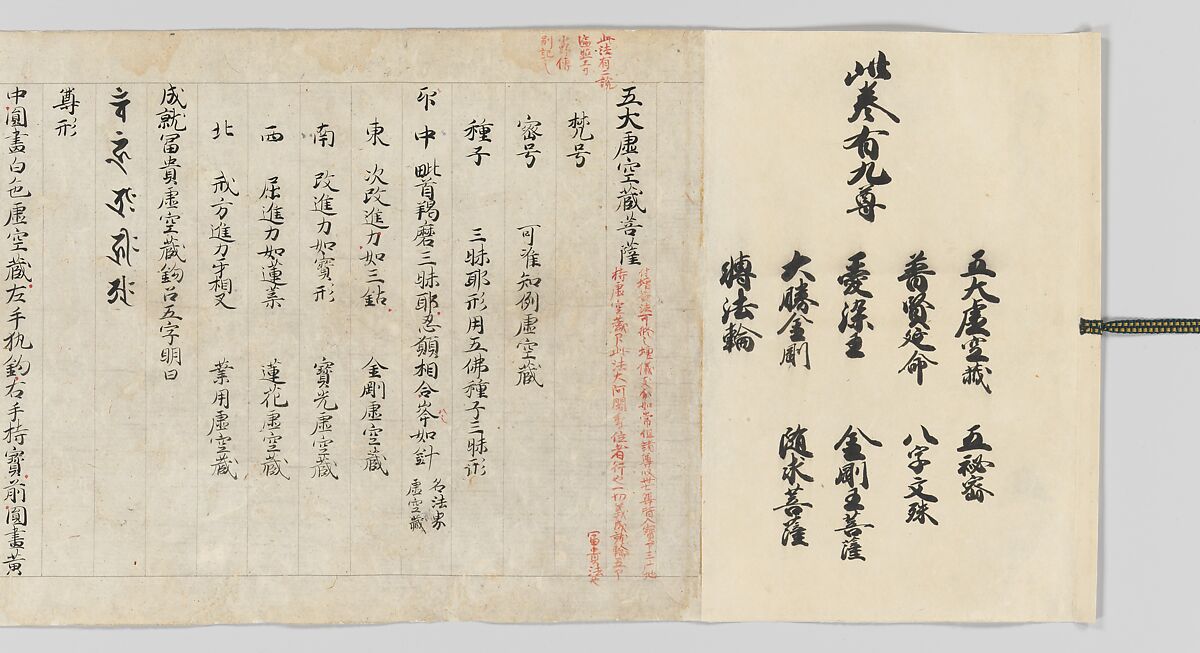 此卷有九尊
五大虛空蔵 五秘密
普賢延命 八字文殊
愛染王 金剛王菩薩
大勝金剛 随求菩薩
轉法輪
此法有二説
小野傳
別記之
五大虛空蔵菩薩
冨貴法也
梵号
密号 可准知例虛空蔵
種子 三昧耶形用五佛種子三昧形
印 中 毗首羯磨三昧耶忍願相合峯如針 名法界虛空蔵
東 次改進力如三鈷 金剛虛空蔵
南 改進力如寶形 寶光虛空蔵
西 屈進力如蓮葉 蓮花虛空蔵
北 戒方進力 相叉 業用虛空蔵
成就冨貴虛空蔵鉤召五字明曰
尊形
中圓畫白色虛空蔵左手執鈎右手持寶前圓畫黃